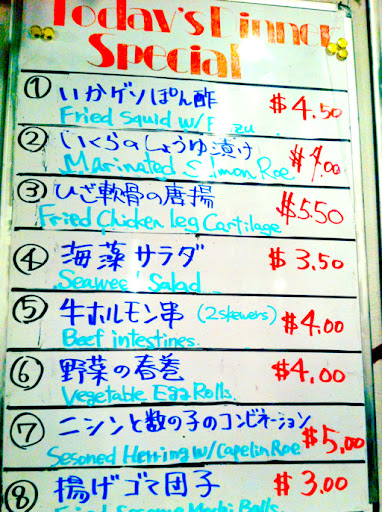 Today's Dinner
Special
① いかゲソぽん酢 $4.50
Fried Squid w/
② いくらのしょうゆ漬け $4.00
Marinated Salmon Roe
③ ひざ軟骨の唐揚 $5.50
Fried Chicken leg Cartilage
④ 海藻サラダ $3.50
Seaweed Salad
⑤ 牛ホルモン串 (2 skewers) $4.00
Beef intestines.
⑥ 野菜の春巻 $4.00
Vegetable Egg Rolls.
⑦ ニシンと数の子のコンビネーション
Sesoned Herring w/ Capelin Roe $5.00
⑧ 揚げゴマ団子 $3.00
Fried Sesame Mochi Balls